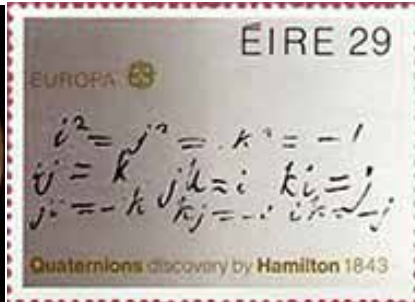 ÉIRE 29
EUROPA 83
i² = j² = k² = -1
ij = k jk = i ki = j
ji = -k kj = -i ik = -j
Quaternions discovery by Hamilton 1843